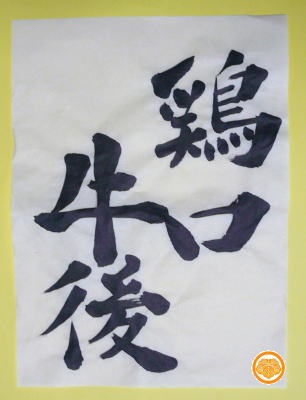 鶏口
牛後